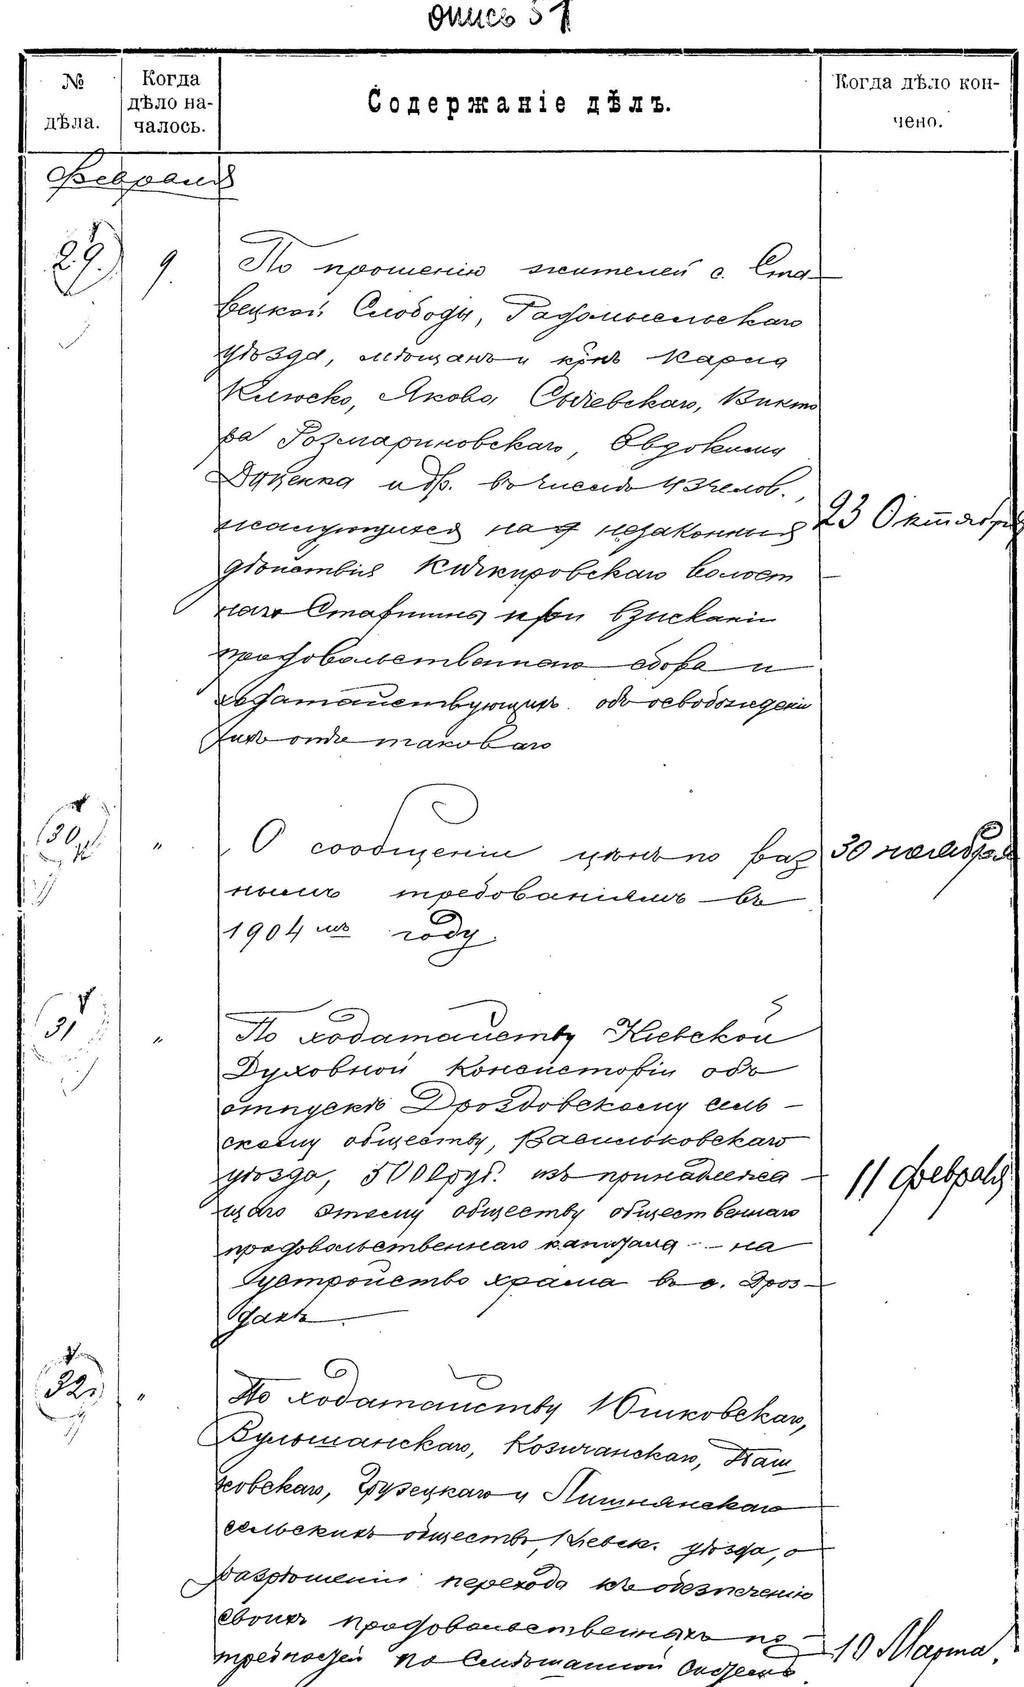 опись 51
№ дѣла.
Когда дѣло началось.
Содержаніе дѣлъ.
Когда дѣло кончено.
Февраля
29. 9. По прошенію жителей с. Ста-
вецкой Слободы, Радомысльскаго
уѣзда, мѣщанъ и кр-нъ Карла
Клюско, Якова Сычевскаго, Викто
ра Розмариновскаго, Евдокима
Даценка и др. въ числѣ 43 челов.,
жалующихся на незаконныя 23 Октября
дѣйствія Кичкировскаго Волост
наго Старшины при взысканіи
продовольственнаго сбора и
ходатайствующихъ объ освобожденіи
ихъ отъ таковаго
30 " О сообщеніи цѣнъ по раз 30 ноября
нымъ требованіямъ въ
1904 мъ году.
31 " По ходатайству Кіевской
Духовной Консисторіи объ
отпускѣ Дроздовскому сель-
скому обществу, Васильковскаго
уѣзда, 5000 руб. изъ принадлежа- 11 февраля
щаго этому обществу общественнаго
продовольственнаго капитала на
устройство храма въ с. Дроз-
дахъ.
32. " По ходатайству Юшковскаго,
Бульшанскаго, Козичанскаго, Паш
ковскаго, Грузецкаго и Пишнянскаго
сельскихъ обществъ, Кіевск. уѣзда, о
разрѣшеніи перехода къ обезпеченію
своихъ продовольственныхъ по-
требностей по смѣшанной системѣ. 10 Марта.